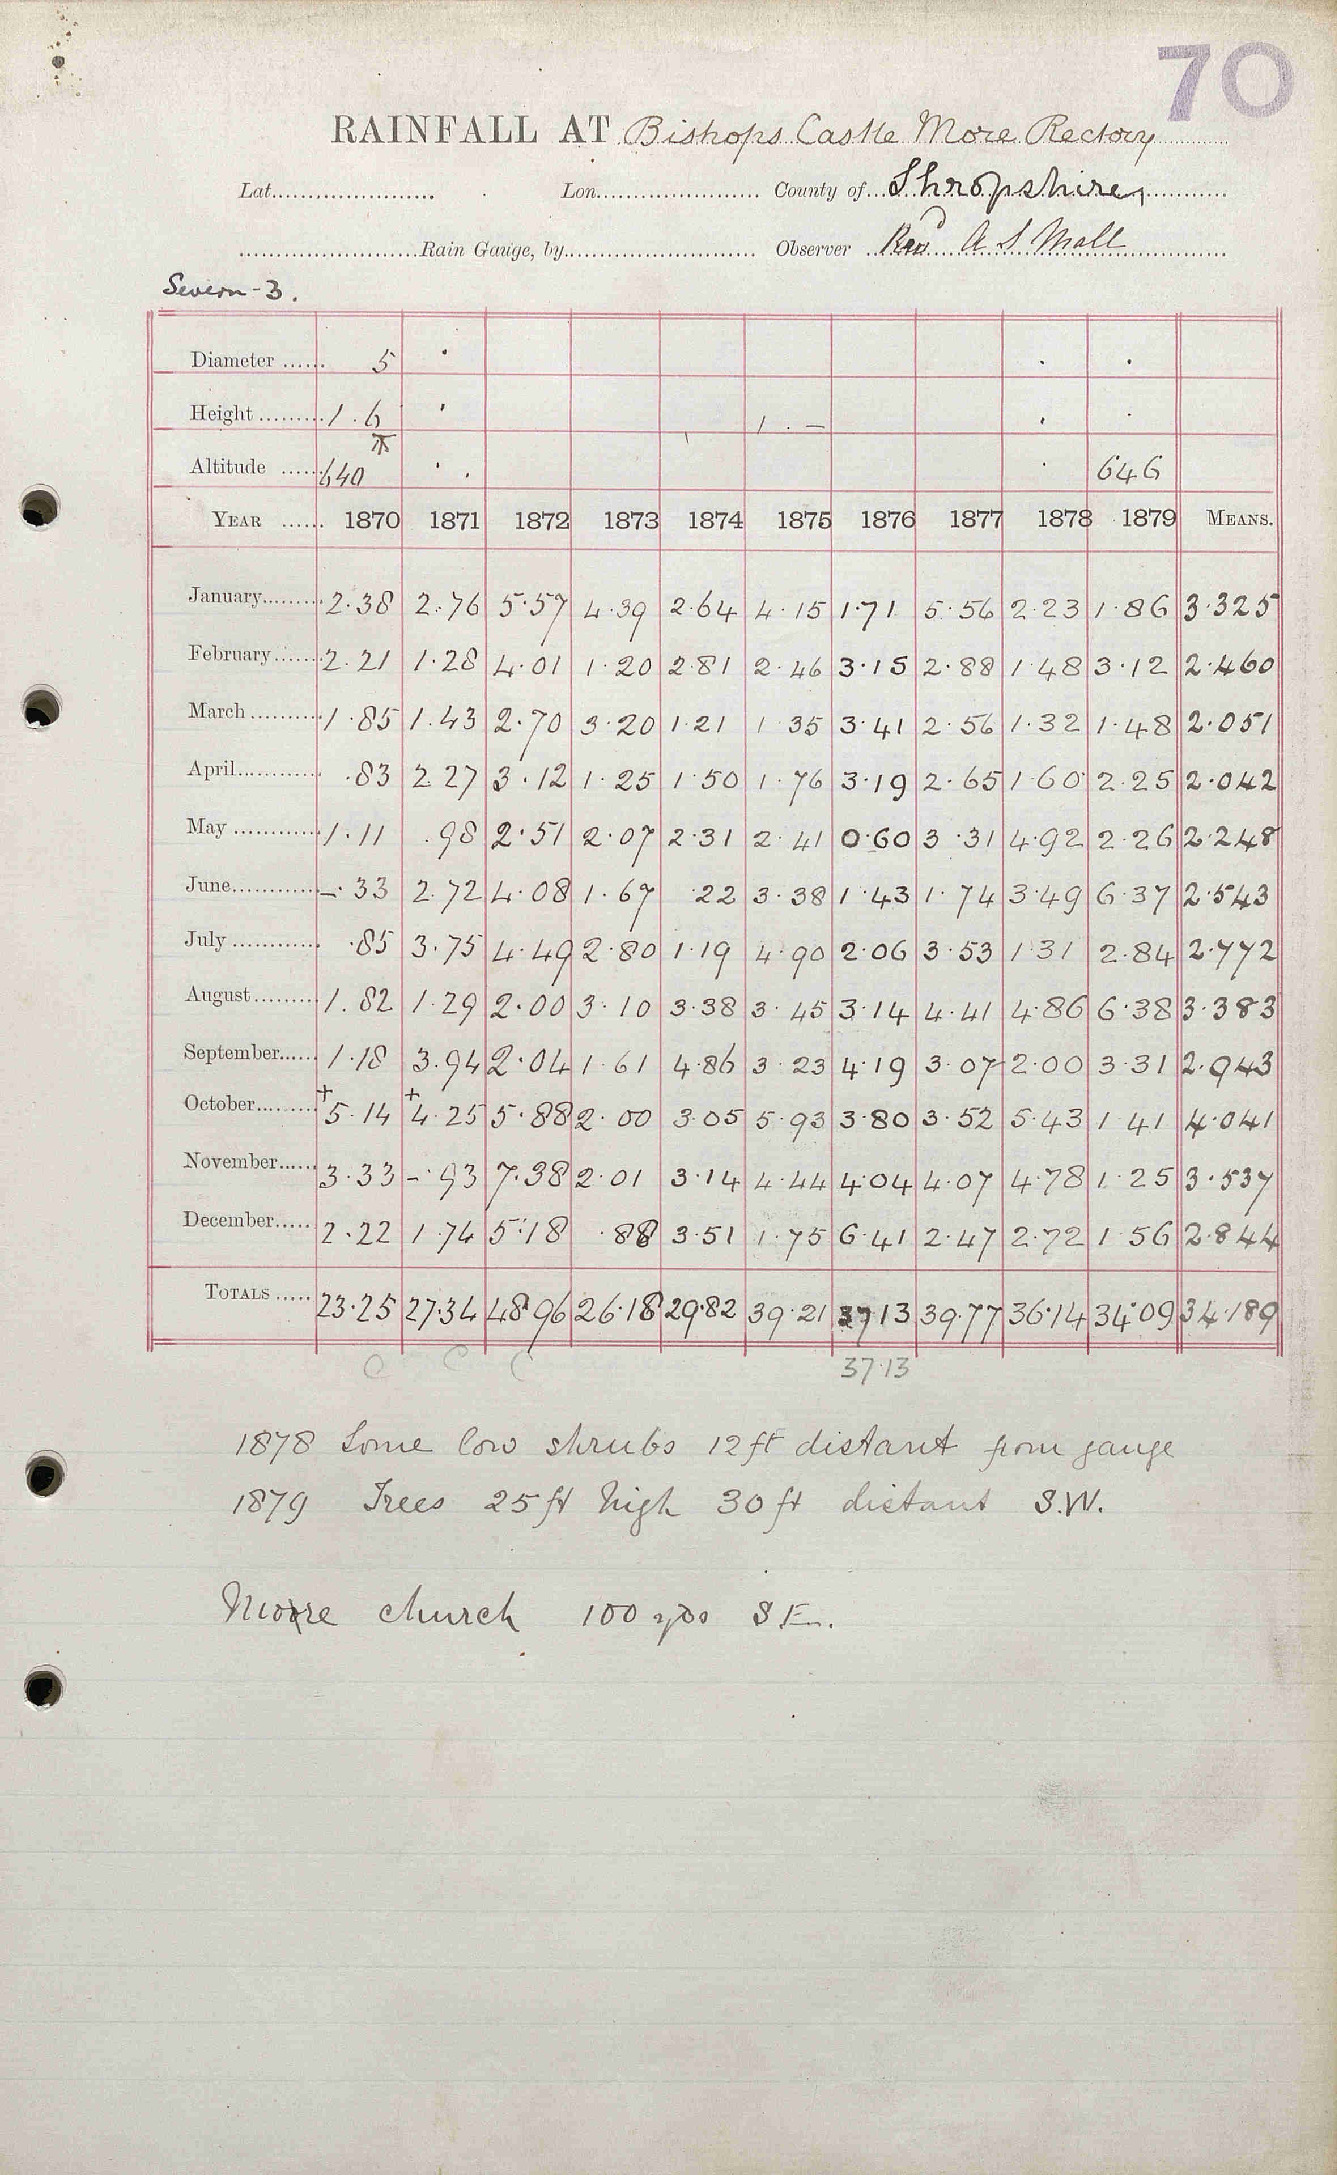 70
RAINFALL AT Bishops Castle More Rectory
Lat. Lon. County of Shropshire,
Rain Gauge, by Observer Revd A S Male
Severn-3.
Diameter 5
Height 1.6 1 . —
Altitude 640 646
YEAR 1870 1871 1872 1873 1874 1875 1876 1877 1878 1879 MEANS.
January 2.38 2.76 5.57 4.39 2.64 4.15 1.71 5.56 2.23 1.86 3.325
February 2.21 1.28 4.01 1.20 2.81 2.46 3.15 2.88 1.48 3.12 2.460
March 1.85 1.43 2.70 3.20 1.21 1.35 3.41 2.56 1.32 1.48 2.051
April .83 2.27 3.12 1.25 1.50 1.76 3.19 2.65 1.60 2.25 2.042
May 1.11 .98 2.51 2.07 2.31 2.41 0.60 3.31 4.92 2.26 2.248
June -.33 2.72 4.08 1.67 .22 3.38 1.43 1.74 3.49 6.37 2.543
July .85 3.75 4.49 2.80 1.19 4.90 2.06 3.53 1.31 2.84 2.772
August 1.82 1.29 2.00 3.10 3.38 3.45 3.14 4.41 4.86 6.38 3.383
September 1.18 3.94 2.04 1.61 4.86 3.23 4.19 3.07 2.00 3.31 2.943
October +5.14 +4.25 5.88 2.00 3.05 5.93 3.80 3.52 5.43 1.41 4.041
November 3.33 -.93 7.38 2.01 3.14 4.44 4.04 4.07 4.78 1.25 3.537
December 2.22 1.74 5.18 .88 3.51 1.75 6.41 2.47 2.72 1.56 2.844
TOTALS 23.25 27.34 48.96 26.18 29.82 39.21 37.13 39.77 36.14 34.09 34.189
C C C 37.13
1878 Some low shrubs 12 ft distant from gauge
1879 Trees 25 ft high 30 ft distant S.W.
More church 100 yds S E.